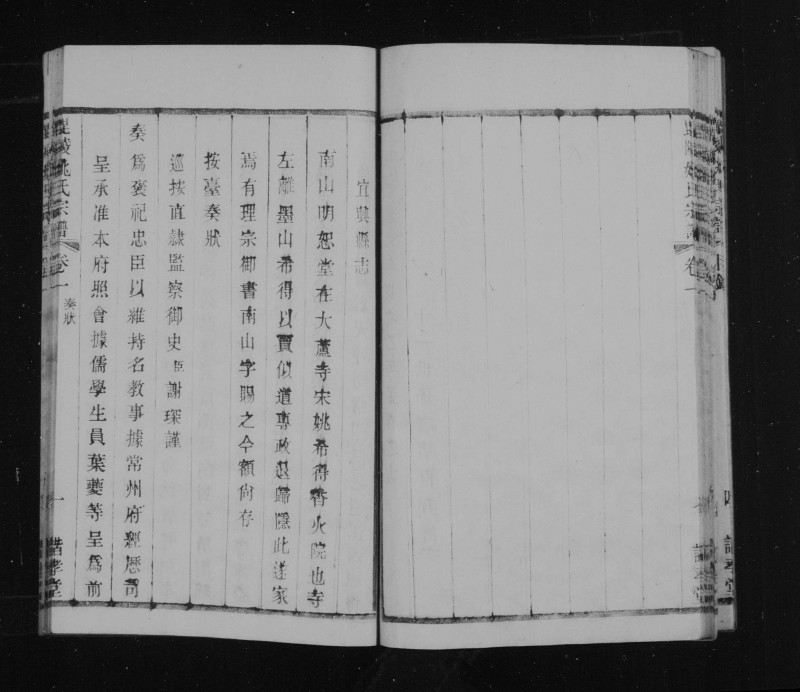 宜興縣志
南山明恕堂在大蘆寺宋姚希得香火院也寺
左離墨山希得以賈似道專政退歸隱此遂家
焉有理宗御書南山字賜之今額尙存
按臺奏狀
巡按直隸監察御史臣謝琛謹
奏爲褒祀忠臣以維持名教事據常州府經歷司
呈承准本府照會據儒學生員葉夔等呈爲前
毘陵姚氏宗譜 卷一 奏狀 一